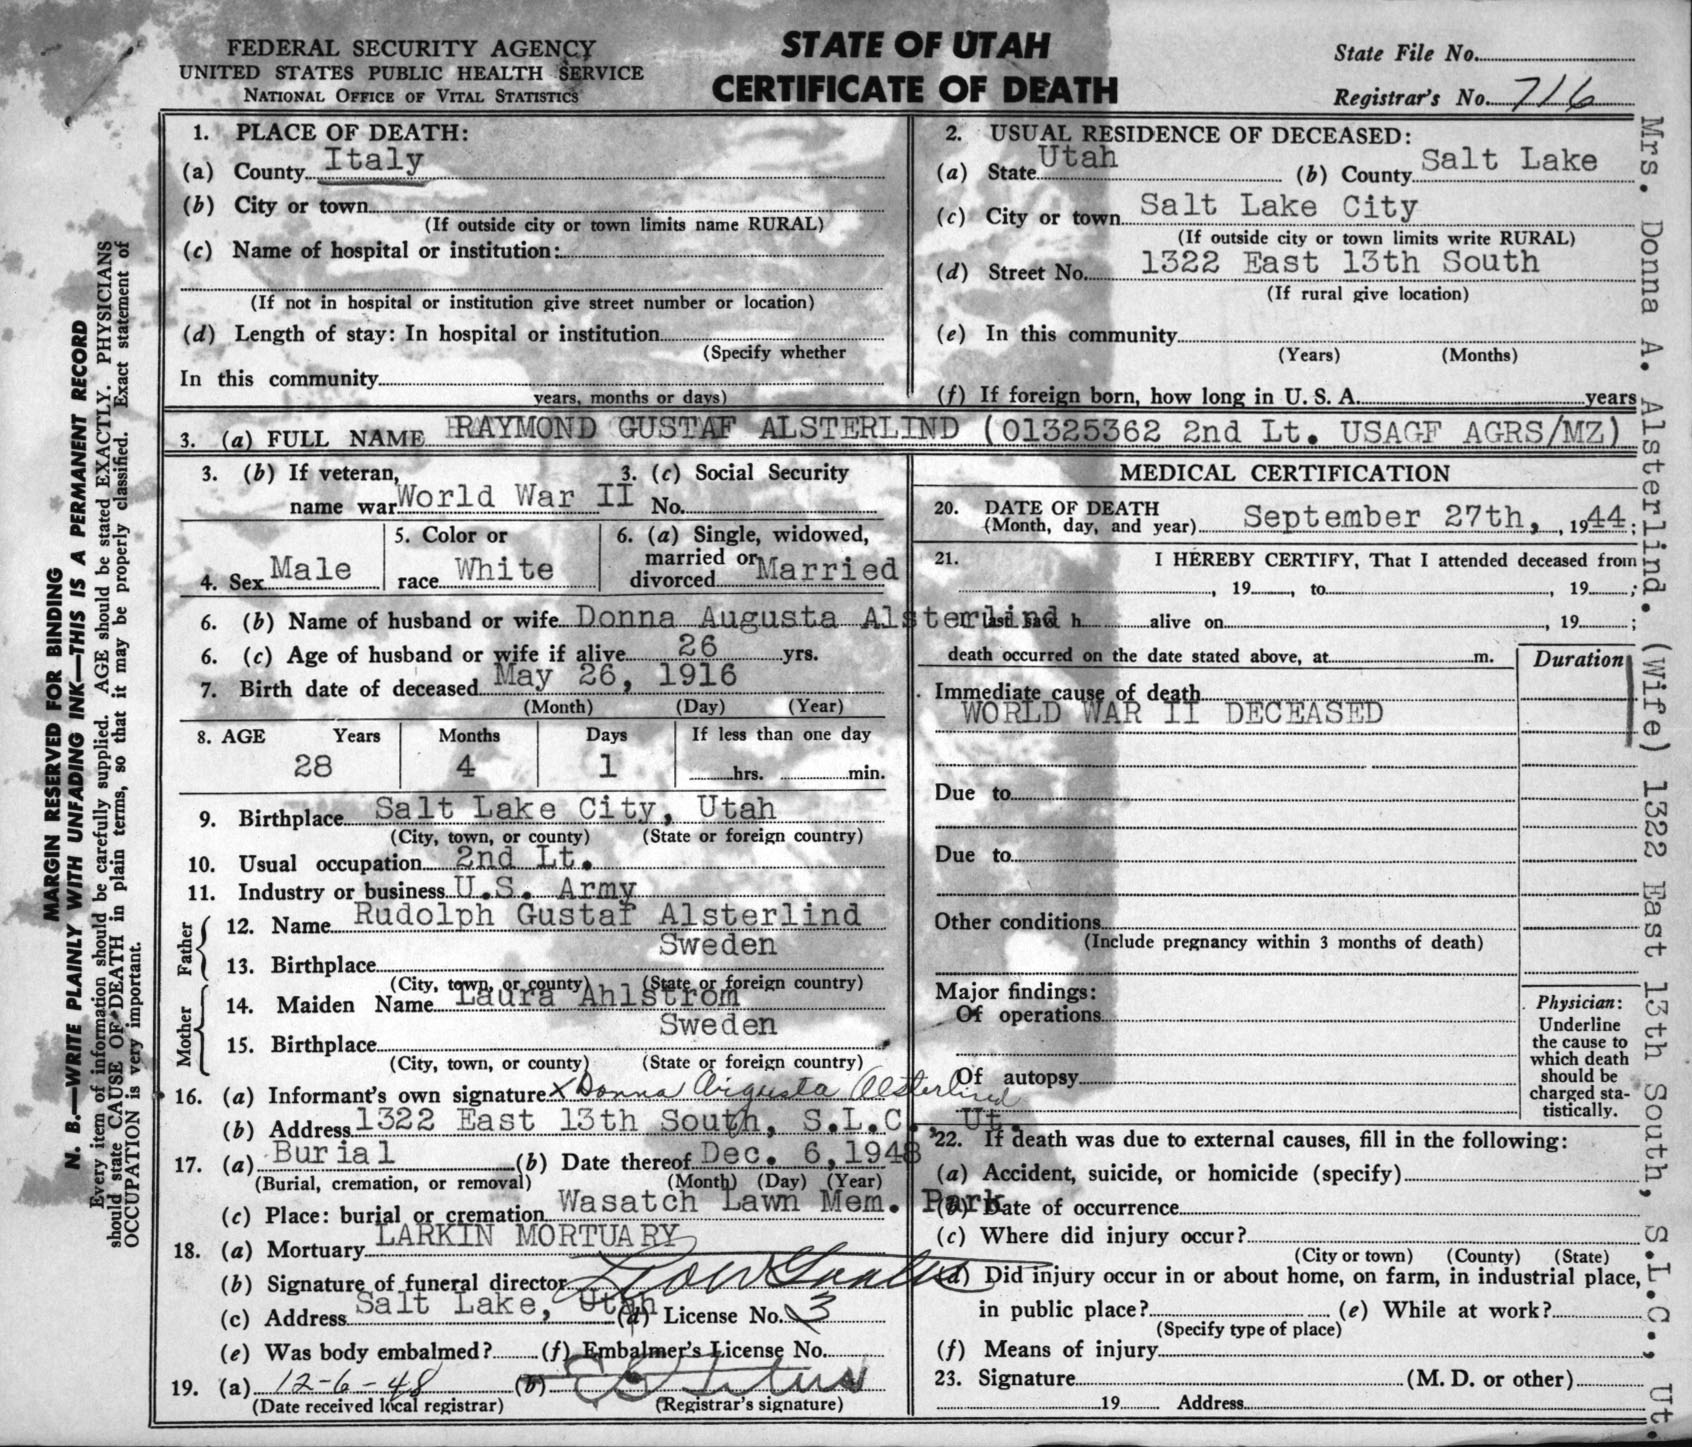 FEDERAL SECURITY AGENCY
UNITED STATES PUBLIC HEALTH SERVICE
NATIONAL OFFICE OF VITAL STATISTICS
STATE OF UTAH
CERTIFICATE OF DEATH
State File No.
Registrar's No. 716
1. PLACE OF DEATH:
(a) County Italy
(b) City or town
(If outside city or town limits name RURAL)
(c) Name of hospital or institution:
(If not in hospital or institution give street number or location)
(d) Length of stay: In hospital or institution
(Specify whether
In this community
years, months or days)
2. USUAL RESIDENCE OF DECEASED:
(a) State Utah (b) County Salt Lake
(c) City or town Salt Lake City
(If outside city or town limits write RURAL)
(d) Street No. 1322 East 13th South
(If rural give location)
(e) In this community
(Years) (Months)
(f) If foreign born, how long in U. S. A. years
3. (a) FULL NAME RAYMOND GUSTAF ALSTERLIND (01325362 2nd Lt. USAGF AGRS/MZ)
3. (b) If veteran, name war World War II
3. (c) Social Security No.
4. Sex Male
5. Color or race White
6. (a) Single, widowed, married or divorced Married
6. (b) Name of husband or wife Donna Augusta Alsterlind
6. (c) Age of husband or wife if alive 26 yrs.
7. Birth date of deceased May 26, 1916
(Month) (Day) (Year)
8. AGE Years Months Days If less than one day
28 4 1 hrs. min.
9. Birthplace Salt Lake City, Utah
(City, town, or county) (State or foreign country)
10. Usual occupation 2nd Lt.
11. Industry or business U.S. Army
Father
12. Name Rudolph Gustaf Alsterlind
13. Birthplace Sweden
(City, town, or county) (State or foreign country)
Mother
14. Maiden Name Laura Ahlstrom
15. Birthplace Sweden
(City, town, or county) (State or foreign country)
16. (a) Informant's own signature x Donna Augusta Alsterlind
(b) Address 1322 East 13th South, S.L.C., Ut.
17. (a) Burial (b) Date thereof Dec. 6, 1948
(Burial, cremation, or removal) (Month) (Day) (Year)
(c) Place: burial or cremation Wasatch Lawn Mem. Park
18. (a) Mortuary LARKIN MORTUARY
(b) Signature of funeral director
(c) Address Salt Lake, Utah (d) License No. 3
(e) Was body embalmed? (f) Embalmer's License No.
19. (a) 12-6-48 (b)
(Date received local registrar) (Registrar's signature)
MEDICAL CERTIFICATION
20. DATE OF DEATH
(Month, day, and year) September 27th, 1944;
21. I HEREBY CERTIFY, That I attended deceased from
, 19 , to , 19 ;
I last saw h alive on , 19 ;
death occurred on the date stated above, at m.
Duration
Immediate cause of death
WORLD WAR II DECEASED
Due to
Due to
Other conditions
(Include pregnancy within 3 months of death)
Major findings:
Of operations
Of autopsy
Physician:
Underline
the cause to
which death
should be
charged sta-
tistically.
22. If death was due to external causes, fill in the following:
(a) Accident, suicide, or homicide (specify)
(b) Date of occurrence
(c) Where did injury occur?
(City or town) (County) (State)
(d) Did injury occur in or about home, on farm, in industrial place,
in public place? (e) While at work?
(Specify type of place)
(f) Means of injury
23. Signature (M. D. or other)
19 Address
MARGIN RESERVED FOR BINDING
N. B.—WRITE PLAINLY WITH UNFADING INK—THIS IS A PERMANENT RECORD
Every item of information should be carefully supplied. AGE should be stated EXACTLY. PHYSICIANS
should state CAUSE OF DEATH in plain terms, so that it may be properly classified. Exact statement of
OCCUPATION is very important.
Mrs. Donna A. Alsterlind. (Wife) 1322 East 13th South, S.L.C., Ut.